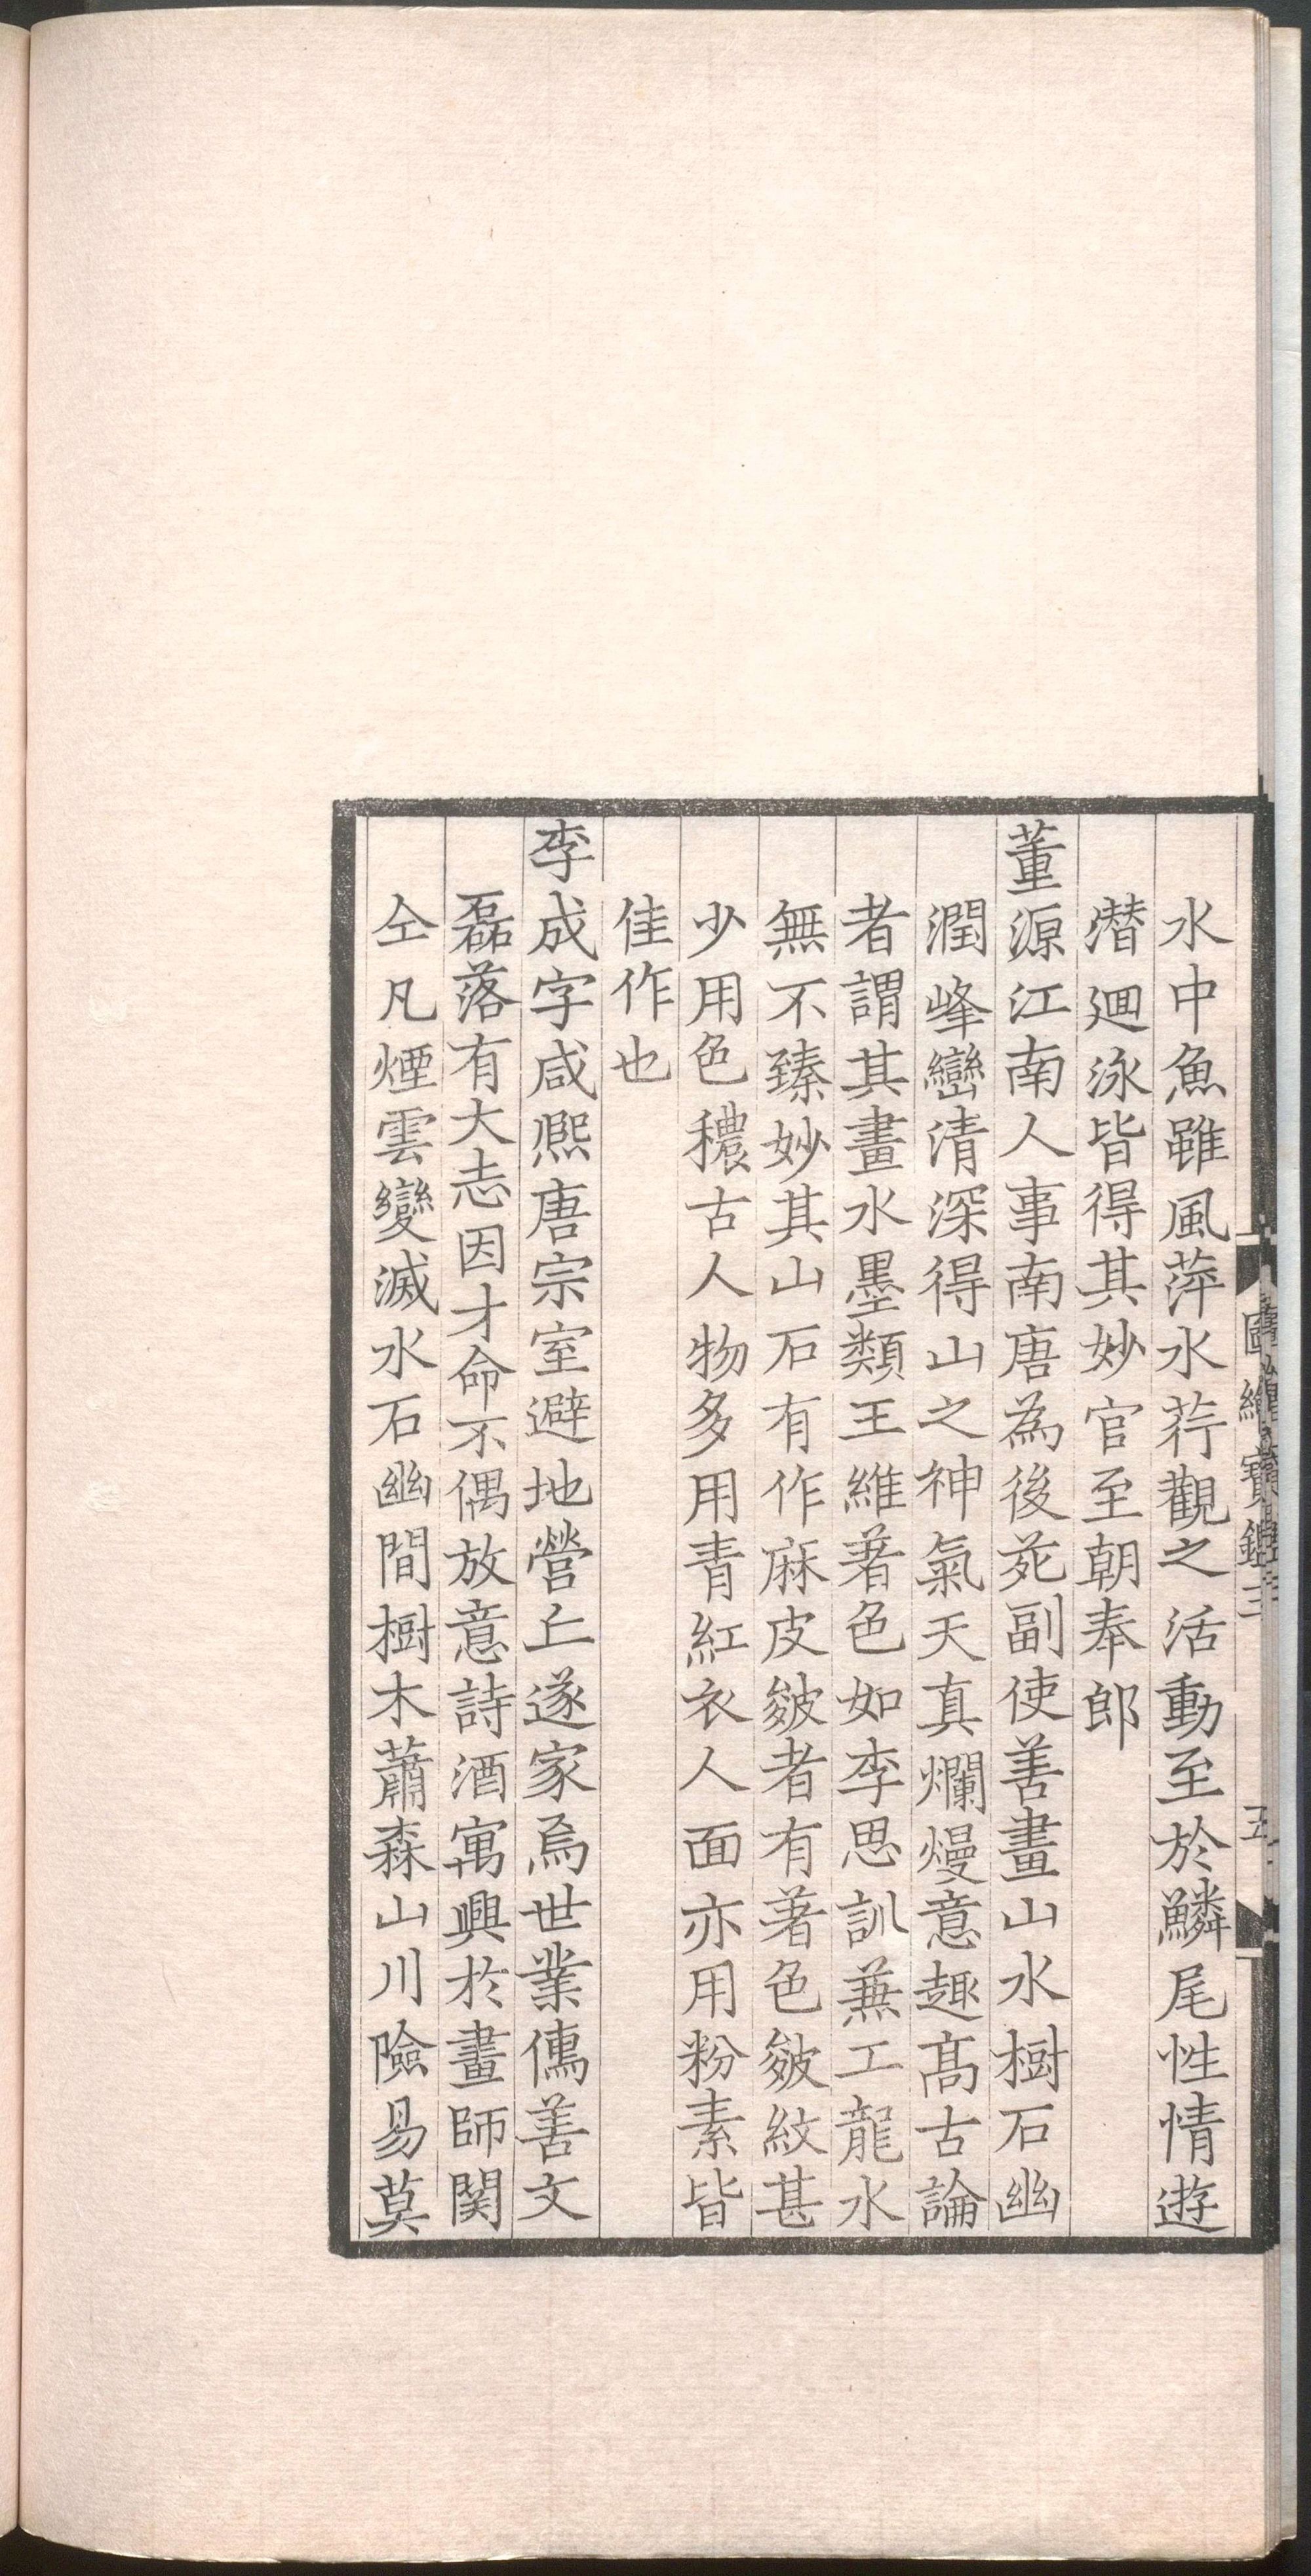 水中魚雖風萍水荇觀之活動至於鱗尾性情遊
潛廽泳皆得其妙官至朝奉郎
董源江南人事南唐為後苑副使善畫山水樹石幽
潤峰巒清深得山之神氣天真爛熳意趣髙古論
者謂其畫水墨類王維著色如李思訓蕪工龍水
無不臻妙其山石有作麻皮皴者有著色皴紋甚
少用色穠古人物多用青紅衣人面亦用粉素皆
佳作也
李成字咸熈唐宗室避地營丘遂家焉世業儒善文
磊落有大志因才命不偶放意詩酒寓興於畫師関
仝凡煙雲變滅水石幽間樹木蕭森山川險易莫
圖繪寶鑑三
五